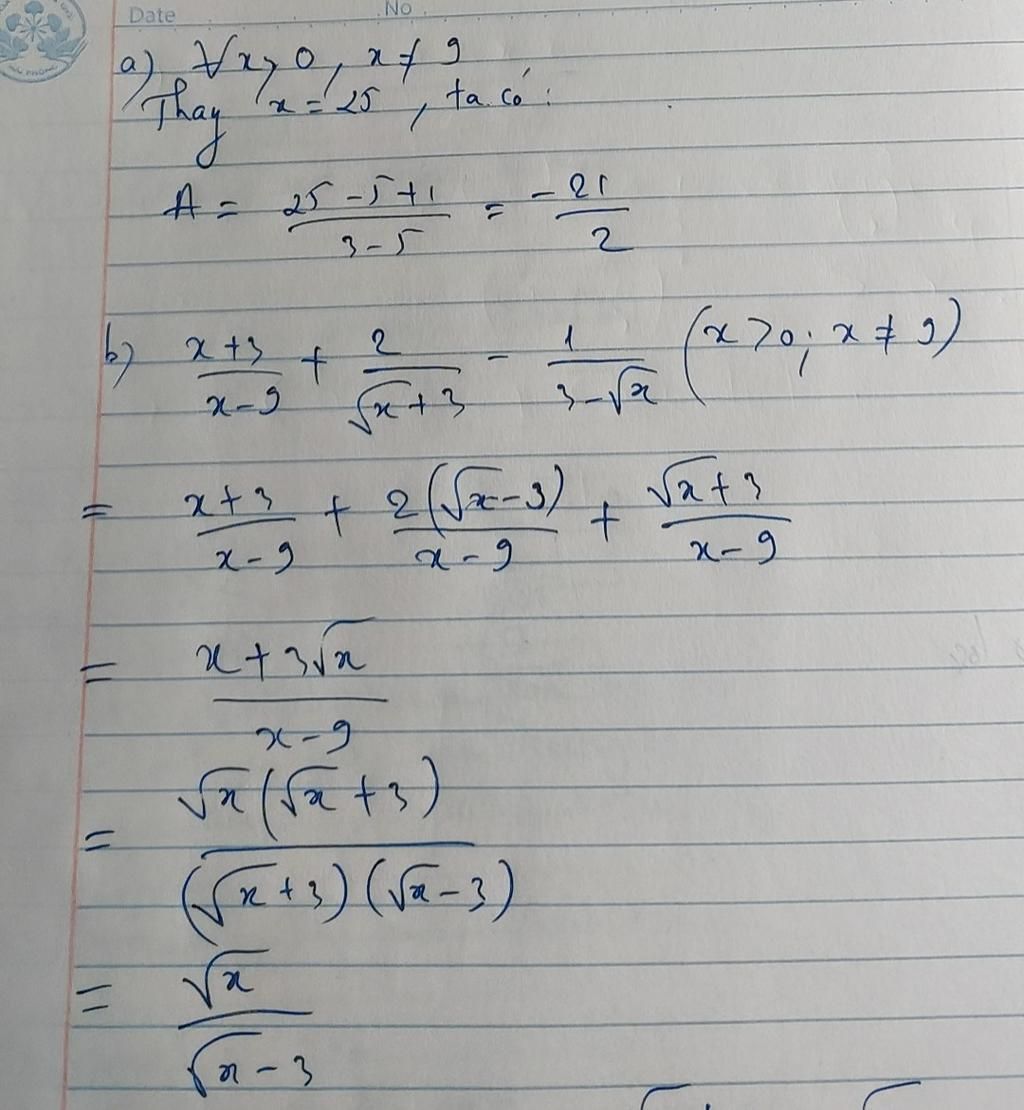 Date No
a) ∀x > 0, x ≠ 9
Thay x = 25, ta có:
A = (25 - 5 + 1)/(3 - 5) = -21/2
b) (x + 3)/(x - 9) + 2/(√x + 3) - 1/(3 - √x) (x > 0; x ≠ 9)
= (x + 3)/(x - 9) + 2(√x - 3)/(x - 9) + (√x + 3)/(x - 9)
= (x + 3√x)/(x - 9)
= √x(√x + 3)/((√x + 3)(√x - 3))
= √x/(√x - 3)